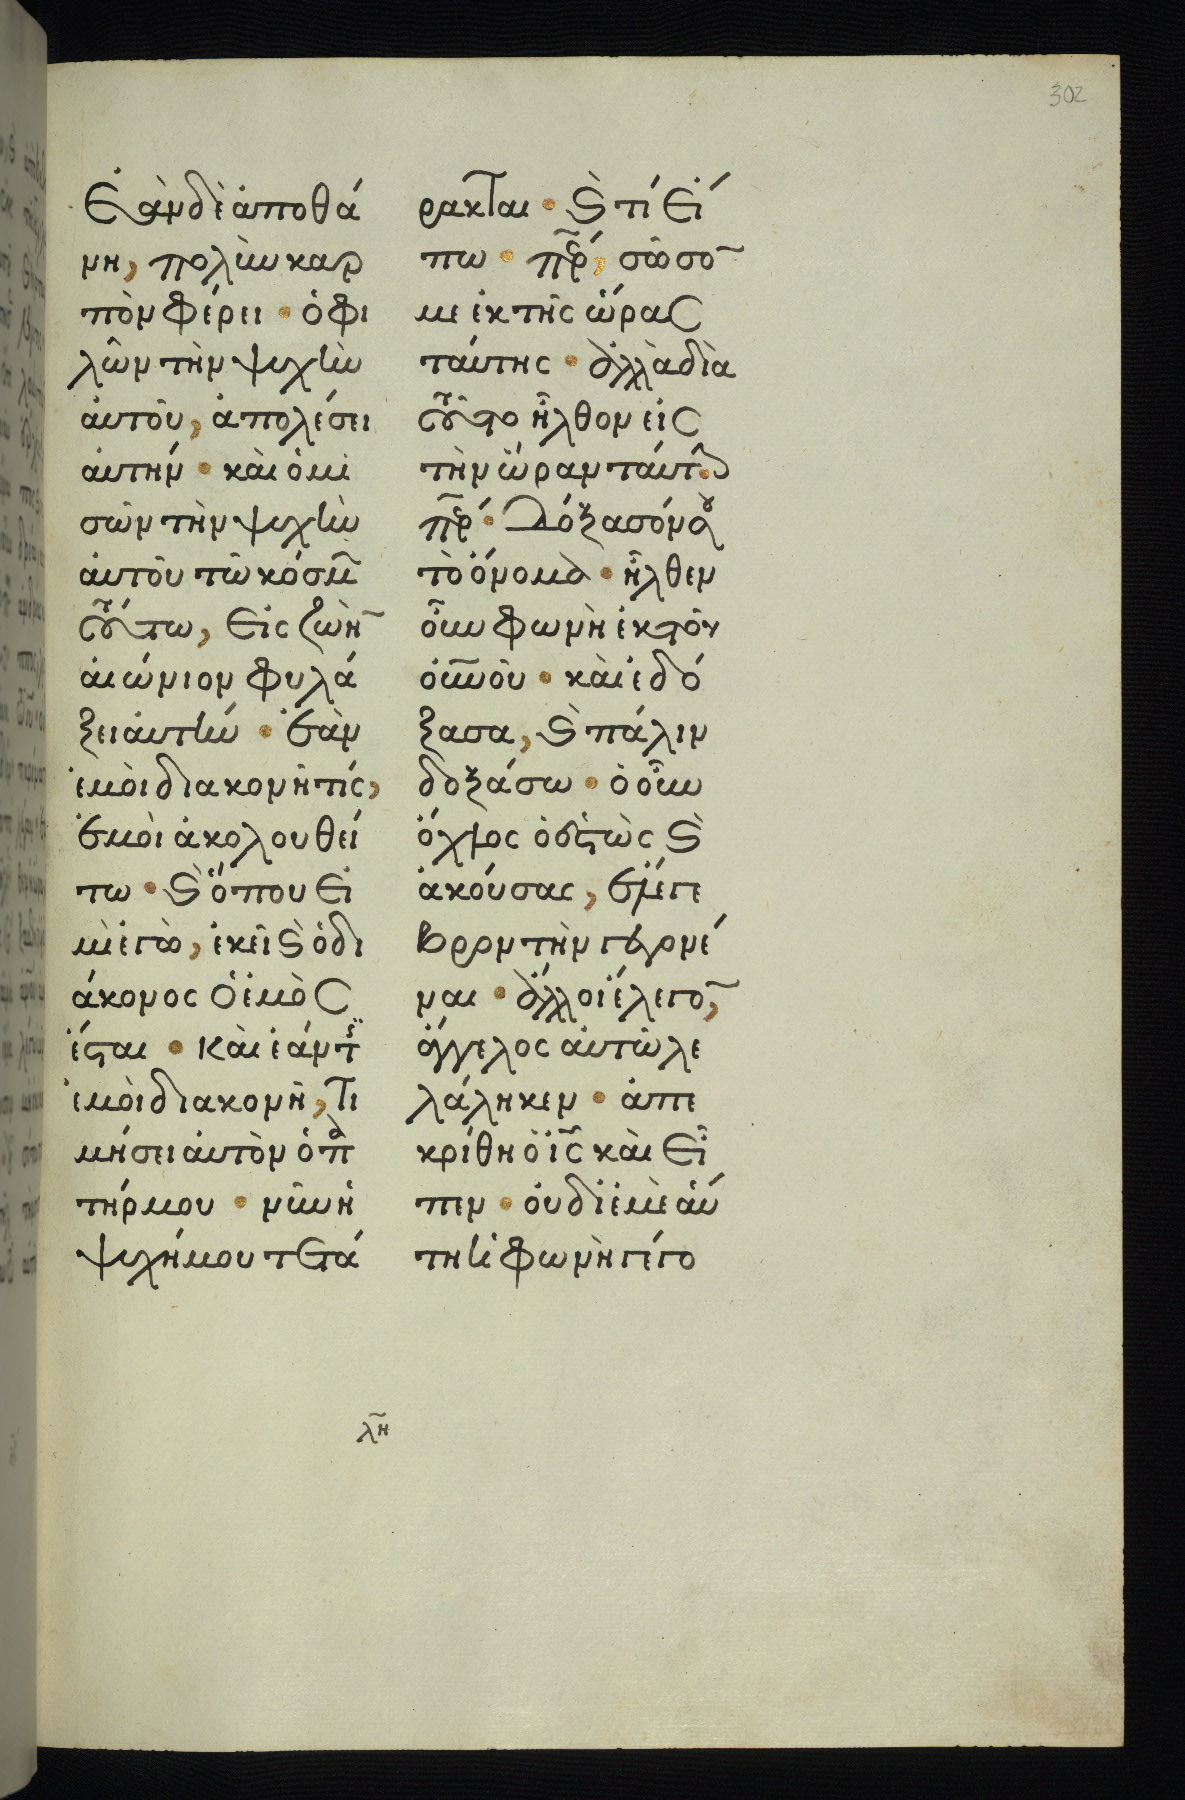 302
Ἐὰν δὲ ἀποθά
νη, πολὺν καρ
πὸν φέρει · ὁ φι
λῶν τὴν ψυχὴν
αὐτοῦ, ἀπολέσει
αὐτήν · καὶ ὁ μι
σῶν τὴν ψυχὴν
αὐτοῦ τῶ κόσμ̅
τούτω, εἰς ζωὴ̅
αἰώνιον φυλά
ξει αὐτήν · ἐὰν
ἐμοὶ διακονῆ τίς,
ἐμοὶ ἀκολουθεί
τω · ϗ ὅπου εἰ
μὶ ἐγὼ, ἐκεῖ ϗ ὁ δι
άκονος ὁ ἐμὸς
ἔϛαι · καὶ ἐάν τ̅ϊς
ἐμοὶ διακονῆ, τι
μήσει αὐτὸν ὁ π̅α
τήρ μου · νῦν ἡ
ψυχή μου τετά
ρακται · ϗ τί εἴ
πω · π̅ε̅ρ, σῶσο̅
με ἐκ τῆς ὥρας
ταύτης · ἀλλὰ διὰ
τοῦτο ἦλθον εἰς
τὴν ὥραν ταύτ ·
π̅ε̅ρ · Δόξασόν σου
τὸ ὄνομα · ἦλθεν
οὖν φωνὴ ἐκ τοῦ
ο̅υ̅νοῦ · καὶ ἐδό
ξασα, ϗ πάλιν
δοξάσω · ὁ οὖν
ὄχλος ὁ ἑϛὼς ϗ
ἀκούσας, ἔλεγε
βροντὴν γεγονέ
ναι · ἄλλοι ἔλεγο̅,
ἄγγελος αὐτῶ λε
λάληκεν · ἀπε
κρίθη ὁ ι̅ς̅ καὶ εἶ
πεν · οὐ δι᾽ ἐμὲ αὕ
τη ἡ φωνὴ γέγο
λη̅